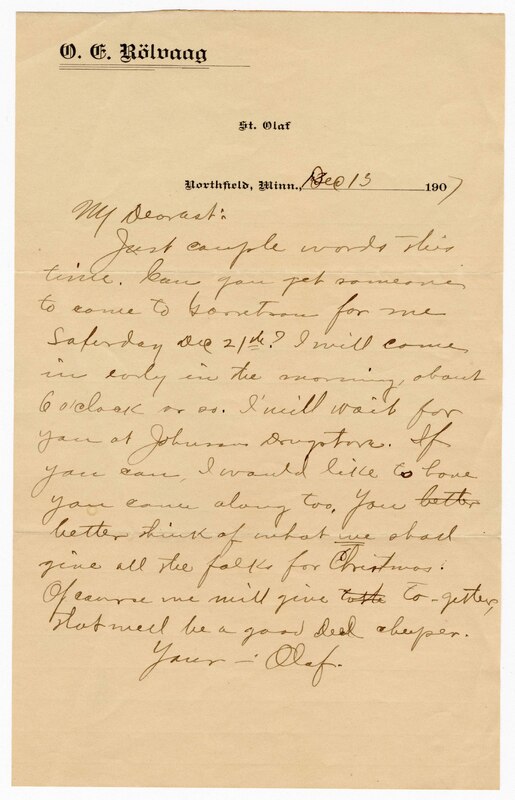 O. E. Rölvaag
St. Olaf
Northfield, Minn., Dec 13 1907
My Dearest:
Just couple words this
time. Can you get someone
to come to Garretson for me
Saturday Dec 21st? I will come
in early in the morning, about
6 o'clock or so. I will wait for
you at Johnson Drugstore. If
you can, I would like to have
you come along too. You better
better think of what we shall
give all the folks for Christmas.
Of course we will give to-getter,
that will be a good deel cheeper.
Your — Olaf.